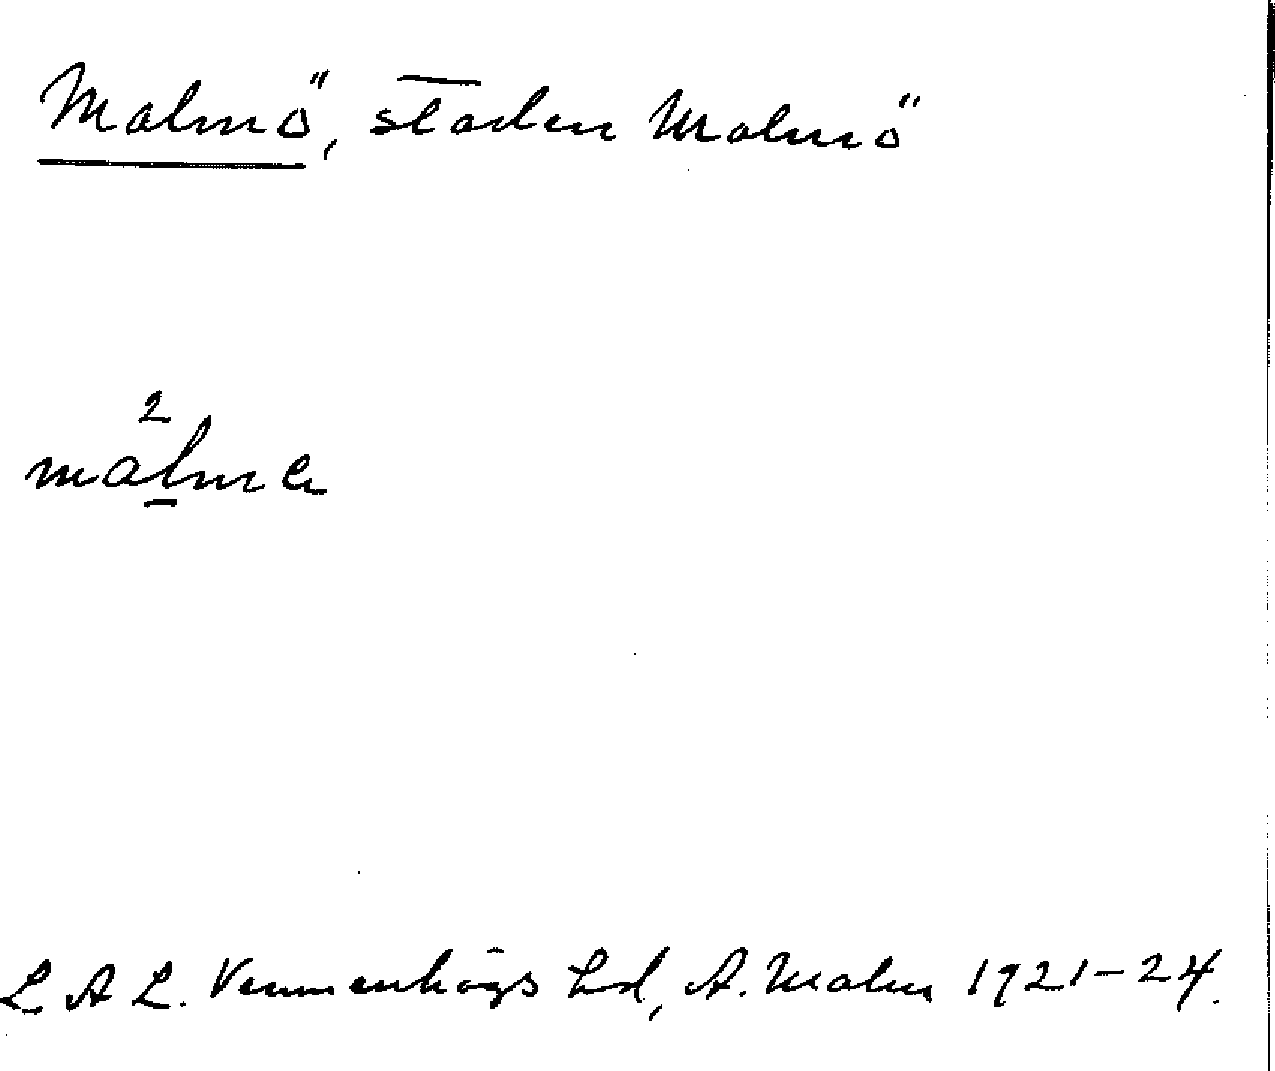 Malmö, staden Malmö
målme
L A L. Vemmenhögs hd, A. Malm 1921-24.